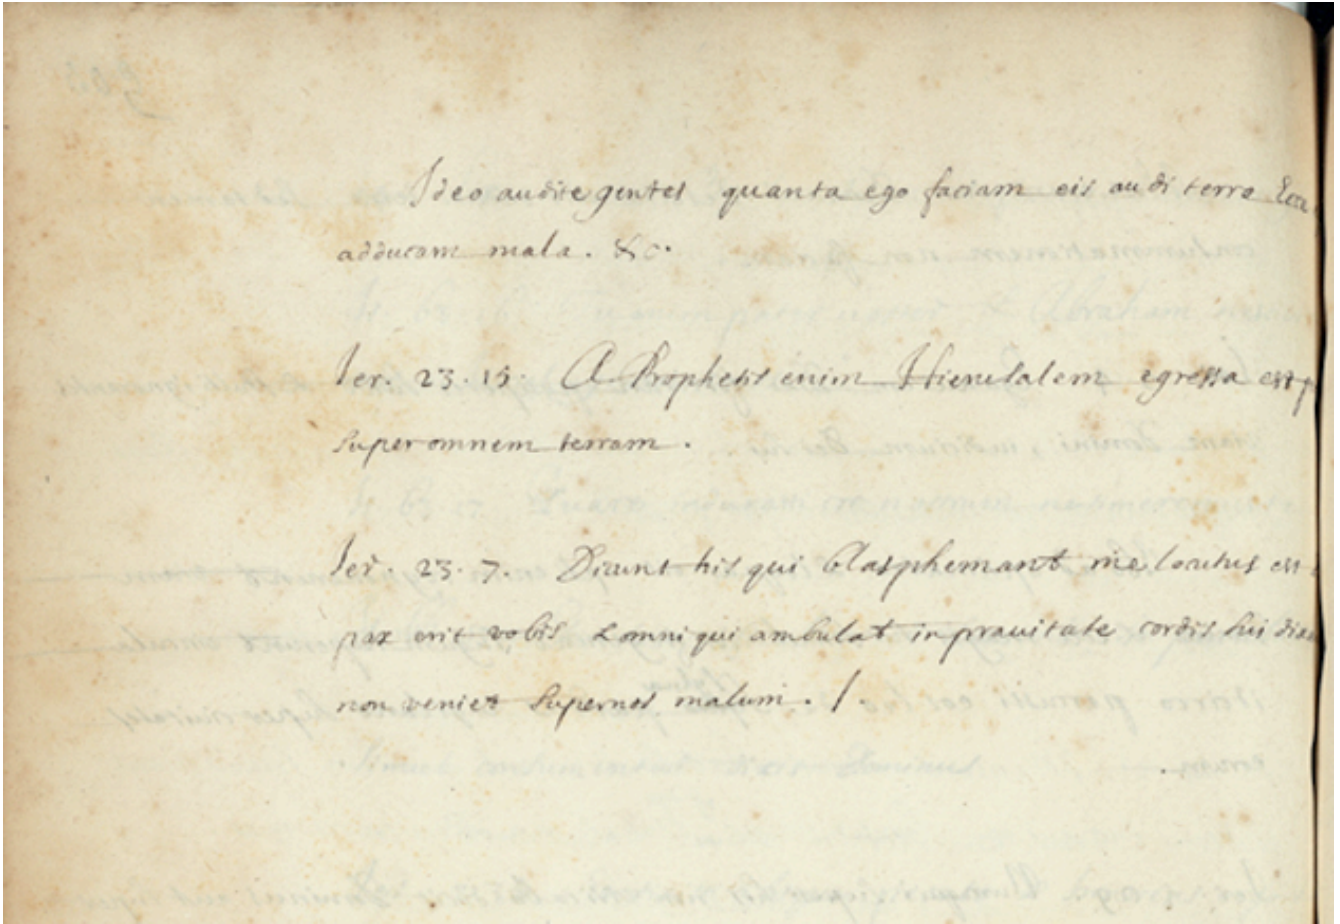 Ideo audite gentes quanta ego faciam eis audi terra Ecce
adducam mala. &c.
Ier. 23. 15. A Prophetis enim Hierusalem egressa est
super omnem terram.
Ier. 23. 7. Dicunt his qui blasphemant me locutus est
pax erit vobis & omni qui ambulat in prauitate cordis sui
non veniet super nos malum. /.